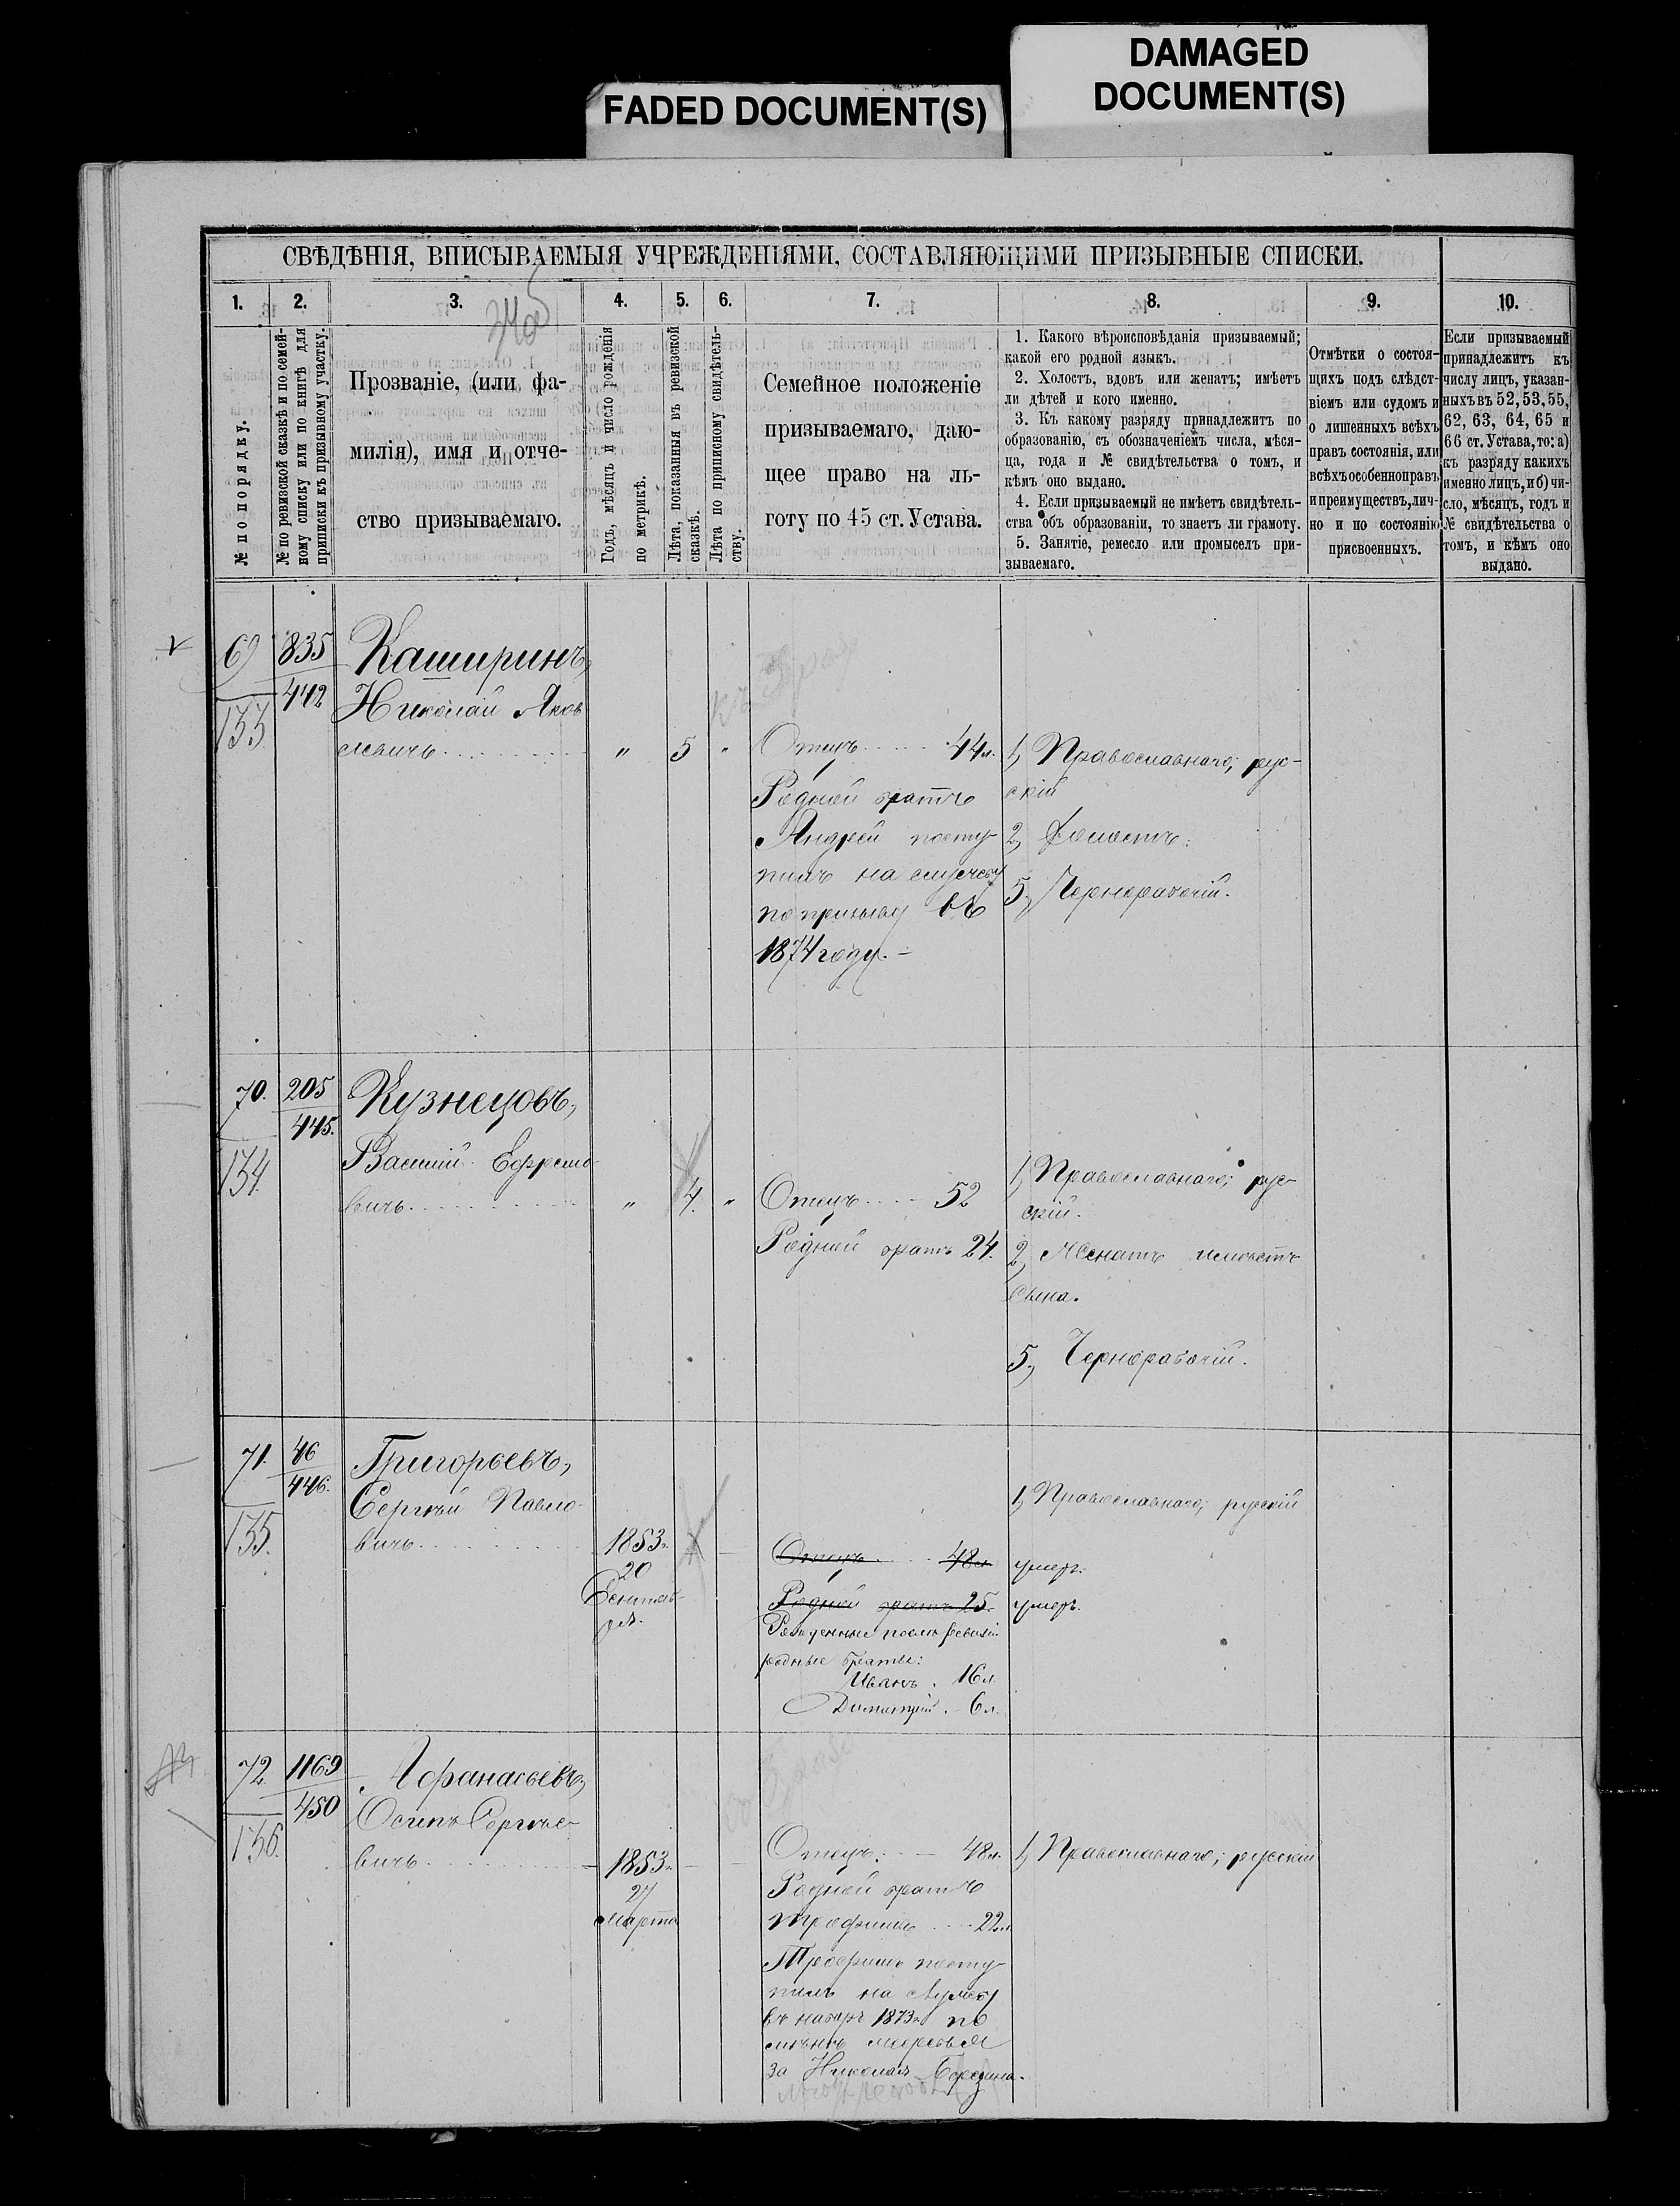 FADED DOCUMENT(S)
DAMAGED
DOCUMENT(S)
СВѢДѢНІЯ, ВПИСЫВАЕМЫЯ УЧРЕЖДЕНІЯМИ, СОСТАВЛЯЮЩИМИ ПРИЗЫВНЫЕ СПИСКИ.
1.
2.
3.
4.
5.
6.
7.
8.
9.
10.
№ по порядку.
№ по ревизской сказкѣ и по семей-
ному списку или по книгѣ для
приписки къ призывному участку.
Прозваніе, (или фа-
милія), имя и отче-
ство призываемаго.
Годъ, мѣсяцъ и число рожденія
по метрикѣ.
Лѣта, показанныя въ ревизской
сказкѣ.
Лѣта по приписному свидѣтель-
ству.
Семейное положеніе
призываемаго, даю-
щее право на ль-
готу по 45 ст. Устава.
1. Какого вѣроисповѣданія призываемый;
какой его родной языкъ.
2. Холостъ, вдовъ или женатъ; имѣетъ
ли дѣтей и кого именно.
3. Къ какому разряду принадлежитъ по
образованію, съ обозначеніемъ числа, мѣся-
ца, года и № свидѣтельства о томъ, и
кѣмъ оно выдано.
4. Если призываемый не имѣетъ свидѣтель-
ства объ образованіи, то знаетъ ли грамоту.
5. Занятіе, ремесло или промыселъ при-
зываемаго.
Отмѣтки о состоя-
щихъ подъ слѣдст-
віемъ или судомъ и
о лишенныхъ всѣхъ
правъ состоянія, или
всѣхъ особенно правъ
и преимуществъ, лич-
но и по состоянію
присвоенныхъ.
Если призываемый
принадлежитъ къ
числу лицъ, указан-
ныхъ въ 52, 53, 55,
62, 63, 64, 65 и
66 ст. Устава, то: а)
къ разряду какихъ
именно лицъ, и б) чи-
сло, мѣсяцъ, годъ и
№ свидѣтельства о
томъ, и кѣмъ оно
выдано.
69
133
835
442
Каширинъ,
Николай Яков-
левичъ
" 5 "
Отецъ 44 л.
Родной братъ
Андрей посту-
пилъ на службу
по призыву въ
1874 году. -
1, Православнаго; рус-
скій
2, Холостъ.
5, Чернорабочій.
70.
134.
205
445.
Кузнецовъ,
Василій Ефремо-
вичъ
" 4. "
Отецъ 52
Родной братъ 24.
1, Православнаго; рус-
скій.
2, Женатъ имѣетъ
сына.
5, Чернорабочій.
71.
135.
46
446.
Григорьевъ,
Сергѣй Павло-
вичъ
1853 г.
20
Сентяб-
ря.
Отецъ 48 л.
Родной братъ 25.
Рожденные послѣ ревизіи
родные братья:
Иванъ. 16 л.
Димитрій. - 6 л.
1, Православнаго; русскій
умеръ.
умеръ.
72.
136.
1169
450
Афанасьевъ,
Осипъ Сергѣе-
вичъ
1853 г.
27
Марта
Отецъ. 48 л.
Родной братъ
Трофимъ 22 л.
Трофимъ посту-
пилъ на службу
въ наборъ 1873 г. по
за Николая
1, Православнаго; русскій